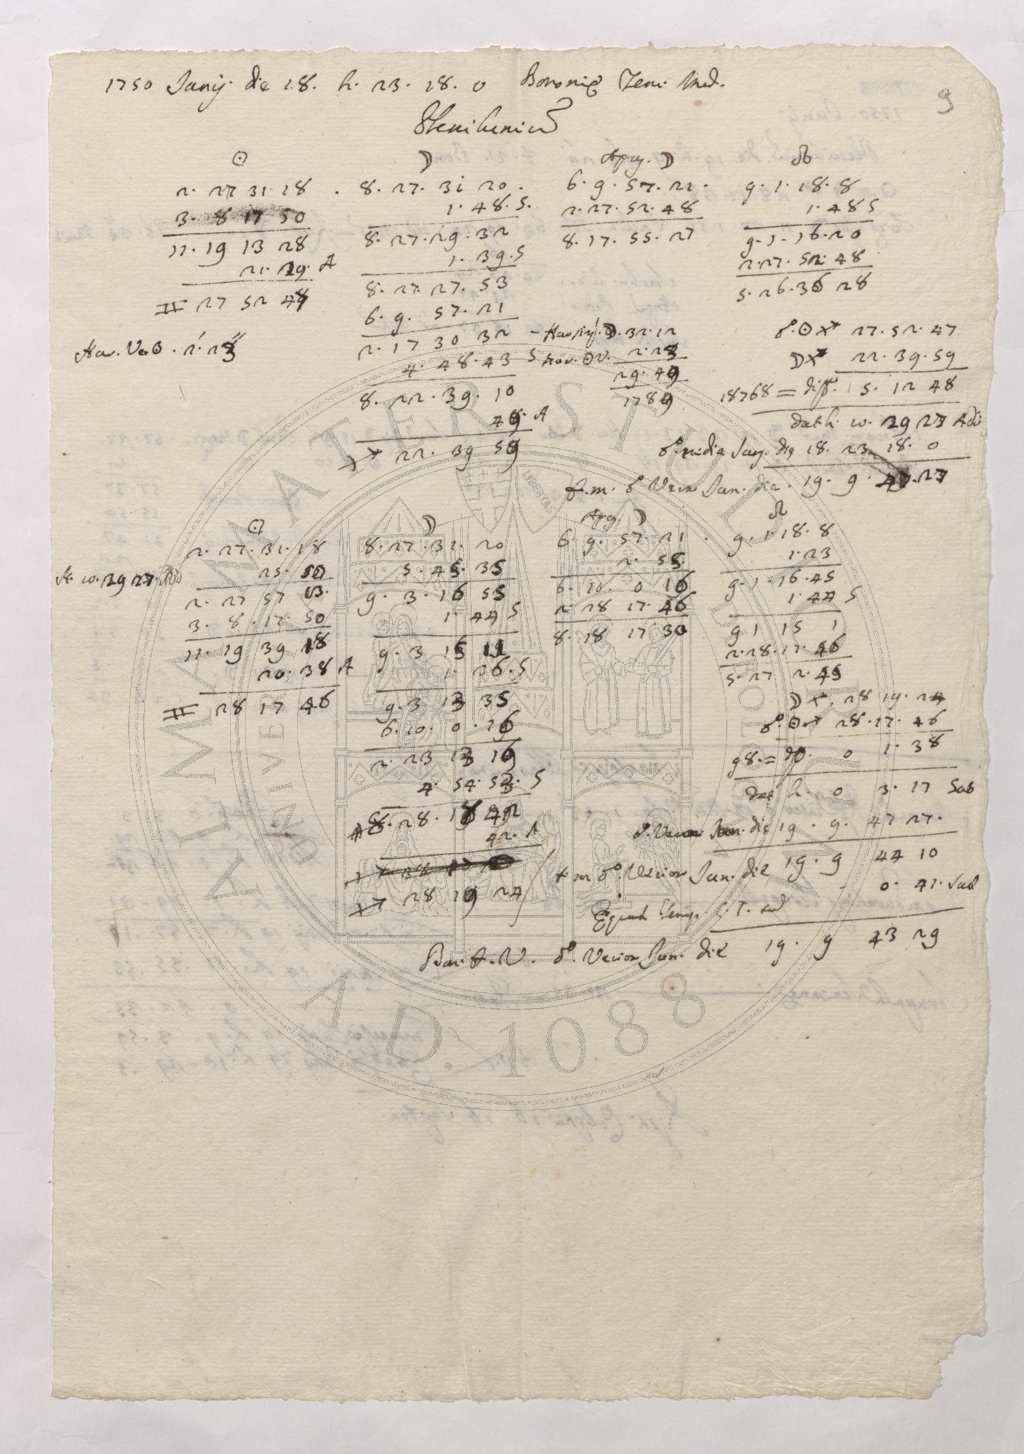 1750 Junij. die 18. h. 23. 18. 0 Bononię Tem. Med.
9
☉
2. 27 31 18
3. 8 17 50
11. 19 13 28
21. 29. A
♊ 27 52 47
Hor. Vo ☉. 2.' 23"
☽
8. 27. 31 20.
1. 48. S.
8. 27. 29. 32
1. 39. S
8. 27. 27. 53
6. 9. 57. 21
2. 17 30 32
4. 48. 43 S
8. 22. 39. 10
49. A
♐ 22. 39 59
Apog. ☽
6. 9. 57. 21.
2. 27. 52. 48
8. 17. 55. 27
☽. 32. 12
2. 23
29. 49
1789
☊
9. 1. 18. 8
1. 48 S
9. 1. 16. 20
2. 27. 52. 48
5. 26. 36 28
☍. ☉ ♐ 27. 52. 47
☽ ♐ 22. 39. 59
18768 = diff. 5. 12 48
dat h. 10. 29 27 Add
☍ media Jun. die 18. 23. 18. 0
t. m. ☍ Vera Jun. die. 19. 9. 47. 27
☉
2. 27. 31. 18
H. 10. 29 27. Add
25. 50
2. 27 57 13.
3. 8. 17. 50
11. 19 39 18
20. 38 A
♊ 28 17 46
☽
8. 27 31. 20
5. 45. 35
9. 3. 16 55
1. 44 S
9. 3 15 11
1. 26. S
9. 3 13 35
6. 10. 0. 16
2. 23 13 19
4. 54. 53. S
8. 28. 18 42
42. A
♐ 28 19 24
Apog. ☽
6. 9. 57. 21.
2. 55
6. 10. 0 16
2 28 17. 46
8. 18 17 30
☊
9. 1. 18. 8
1. 23
9. 1. 16. 45
1. 44 S
9 1 15 1
2. 28. 17. 46
5. 27 2. 45
☽ ♐. 28 19. 24
☍. ☉ ♐ 28. 17. 46
98. = d. 0 1. 38
dat h. 0 3. 17 Sub
☍. Vera Jun. die 19. 9. 47 27.
t. m ☍. Verior Jun. die 19. 9 44 10
0. 41. Sub
Bon. t. V. ☍. Verior Jun. die 19. 9 43 29
ALMA MATER STUDIORUM
A.D. 1088